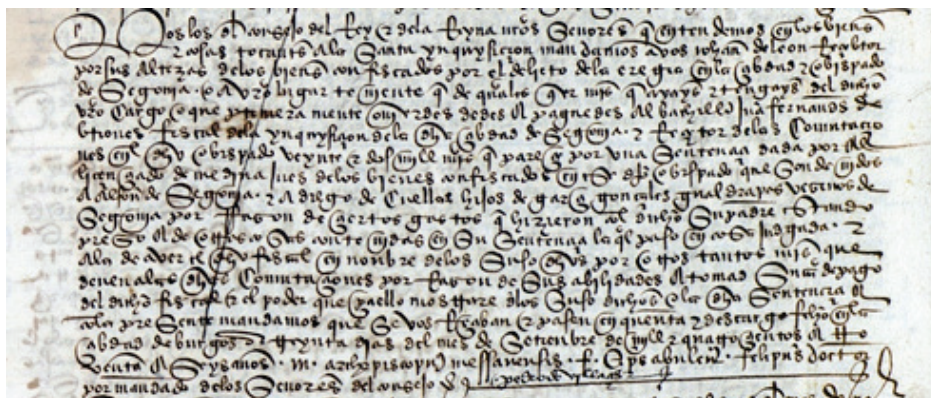 Nos los del consejo del Rey & dela Reyna nros Señores q entendemos en los bienes
& cosas tocants ala Santa ynquysiçion mandamos a vos johan de leon Reçebtor
por sus altezas delos bienes confiscados por el delito dela eregia en la çibdad & obispado
de Segovia o a vro lugar teniente q de quales quier mrs q ayays & tengays del dicho
vro cargo e que primera mente dedes & paguedes al bachiller Juº fernands de
fiscal dela ynquysiçion dela dha çibdad de Segovia & Reçebtor delas Conmutacio
nes en el dho obispado veynte & dos mill mrs q pareçe por una Sentençia dada por el
liçençiado de medina Jues delos bienes confiscados en ese dho obispado que son devidos
a alfonso de Segovia & a diego de Cuellar hijos de garçi gonsales vesinos de
Segovia por Rason de çiertos gastos q hizieron al dicho Su padre estando
preso & de otras cosas contenidas en Su Sentençia la ql paso en cosa judgada &
a de aver el dho fiscal en nonbre delos Suso dhos por otros tantos mrs que
deven alas dhas Conmutaçiones por Rason de Sus abilidades & tomad de pago
del dicho fiscal & el poder que paello mostrare delos Suso dichos & la dha Sentençia &
con la presente mandamos que se vos Reçiban & pasen en quenta & descargo fecho en la
çibdad de burgos a treynta dias del mes de Setienbre de mill & quatroçientos &
noventa & seys años . m. archiepiscopus messanensis . f. eps abulen . felipus doctor
por mandado delos Señores del consejo